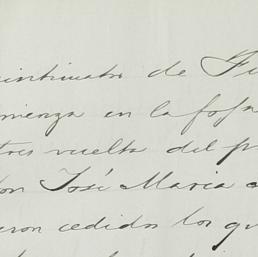 veinticuatro de
comienza en la fosa
tres vuelta del p
don José Maria
eron cedidos los qu